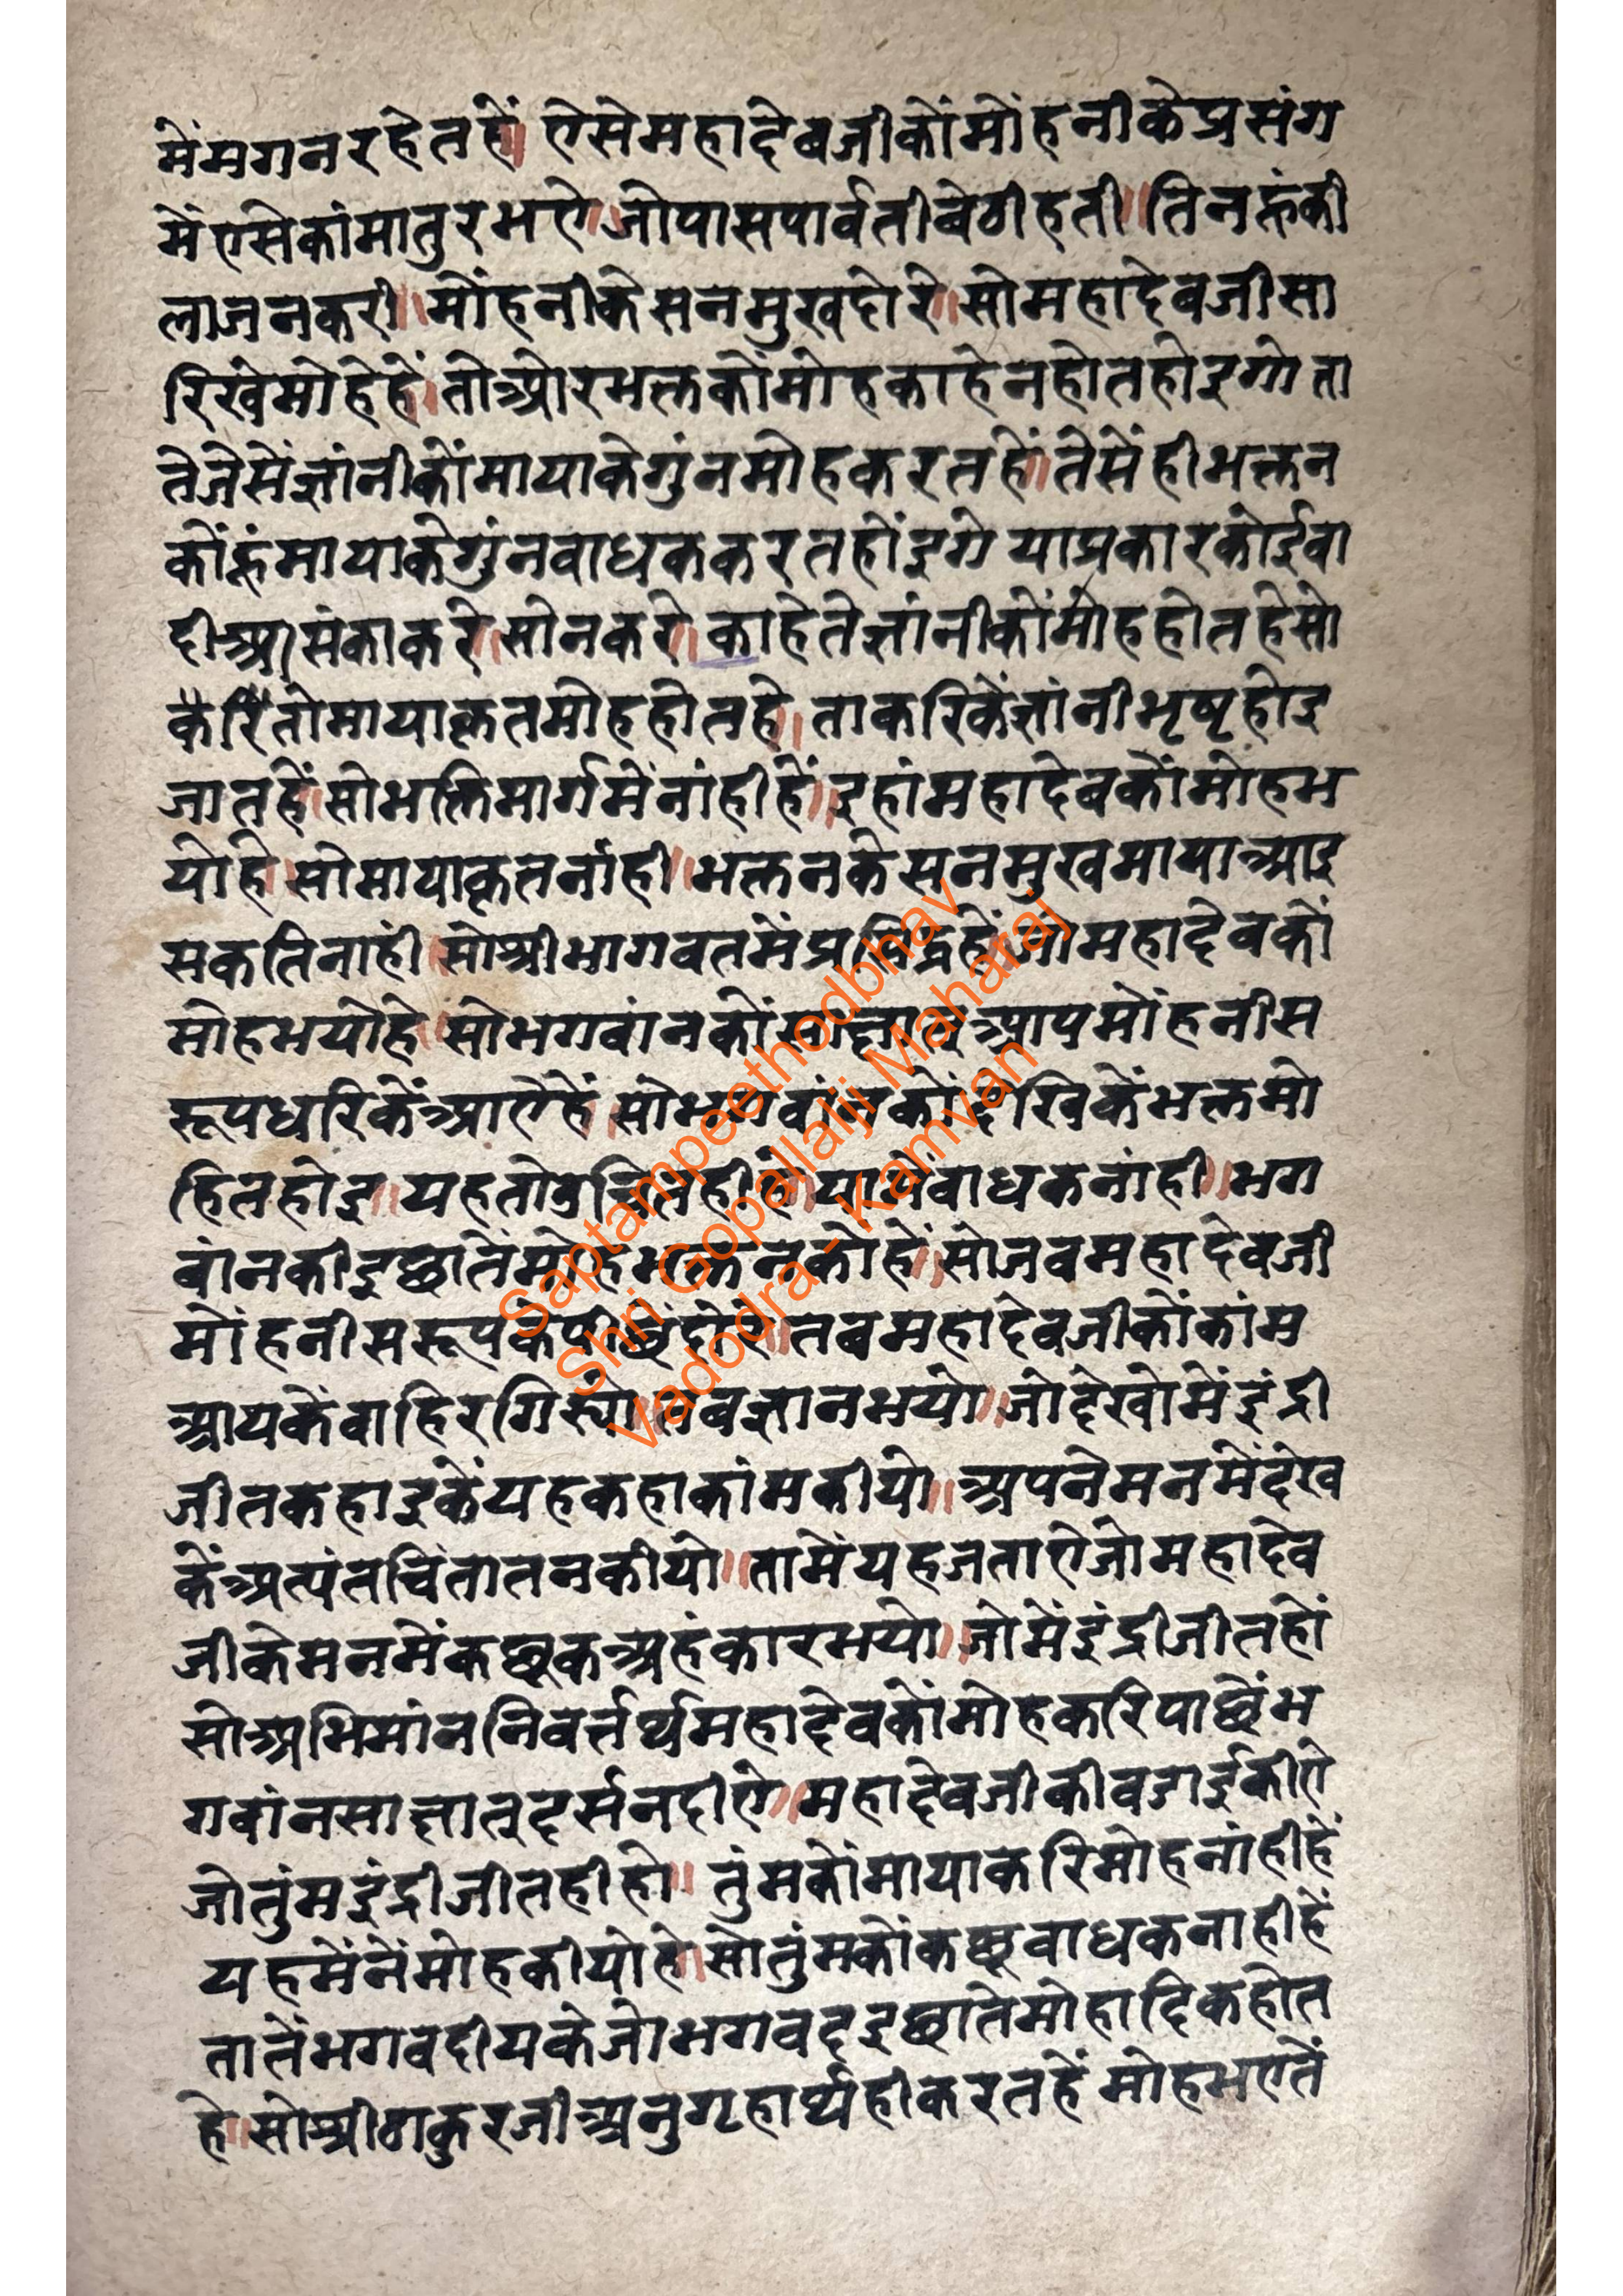 मेंमगनरहेतहें॥ ऐसेमहादेवजीकोंमोंहनीकेप्रसंग
मेंएसेकांमातुरभऐ॥जोपासपार्वतीबेठीहती॥तिनहुंकी
लाजनकरी॥मोंहनीकेसनमुखदोरे॥सोमहादेवजीसा
रिखेमोहेहें॥तोओरभक्तकोंमोहकाहेनहोतहोइगोता
तेजेसेंज्ञांनीकोंमायाकेगुंनमोहकरतहें॥तेसेंहीभक्तन
कोंहूंमायाकेगुंनबाधककरतहोंइगे याप्रकारकोईवा
दीआसंकाकरे॥सोनकरे॥काहेतेज्ञांनीकोंमोहहोतहेसो
करितोमायाकृतमोहहोतहे॥ताकरिकेंज्ञांनीभृष्टहोइ
जातहें॥सोभक्तिमार्गमेंनांहीहें॥इहांमहादेवकोंमोहभ
योहे॥सोमायाकृतनांही॥भक्तनकेसनमुखमायाआइ
सकतिनाहीं॥सोश्रीभागवतमेंप्रसिद्धहें॥जोमहादेवकों
मोहभयोहे॥सोभगवांनकोंसाक्षातआपमोंहनीस
रूपधरिकेंआऐहें॥सोभगवांनकोंदेखिकेंभक्तमो
हितहोइ॥यहतोउचितहीहे॥यामेंबाधकनांही॥भग
वांनकीइछातेंमोहभक्तनकोहें॥सोजबमहादेवजी
मोंहनीसरूपकेपीछेंदोरे॥तबमहादेवजीकोंकांम
आयकेंबाहिरगिर्यो॥तबज्ञानभयो॥जोदेखोमेंइंद्री
जीतकहाइकेंयहकहाकांमकीयो॥अपनेमनमेंदेख
केंअत्यंतचिंतातनकीयो॥तामेंयहजताऐजोमहादेव
जीकेमनमेंकछूकअहंकारभयो॥जोमेंइंद्रीजीतहों
सोअभिमांननिवर्त्तर्थमहादेवकोंमोहकरिपाछेंभ
गवांनसाक्षातदर्सनदीऐ॥महादेवजीकीबडाईकीऐ
जोतुंमइंद्रीजीतहीहो॥तुंमकोंमायाकरिमोहनांहीहें
यहमेंनेंमोहकीयोहे॥सोतुंमकोंकछूबाधकनाहीहें
तातेंभगवदीयकेजोभगवदइछातेमोहादिकहोत
हे॥सोश्रीठाकुरजीअनुगृहार्थहीकरतहें मोहभएतें
Saptampeethodbhav
Shri Gopallalji Maharaj
Vadodra - Kamvan